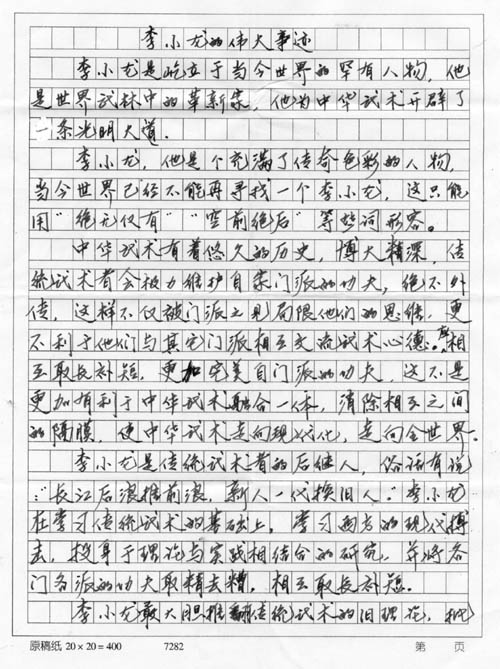 李小龙的伟大事迹
李小龙是屹立于当今世界的罕有人物,他
是世界武林中的革新家,他为中华武术开辟了
一条光明大道.
李小龙,他是个充满了传奇色彩的人物,
当今世界已经不能再寻找一个李小龙,这只能
用"绝无仅有""空前绝后"等些词形容.
中华武术有着悠久的历史,博大精深,传
统武术者会极力维护自家门派的功夫,绝不外
传,这样不仅被门派之见局限他们的思维,更
不利于他们与其它门派相互交流武术心德.相
互取长补短,更加完美自门派的功夫,这不是
更加有利于中华武术融合一体,消除相互之间
的隔膜,使中华武术走向现代化,走向全世界.
李小龙是传统武术者的后继人,俗话有说
:"长江后浪推前浪,新人一代换旧人."李小龙
在学习传统武术的基础上,学习西方的现代搏
击,投身于理论与实践相结合的研究,并将各
门各派的功夫取精去糟,相互取长补短.
李小龙敢大胆推翻传统武术的旧理论,
原稿纸 20×20=400 7282 第 页